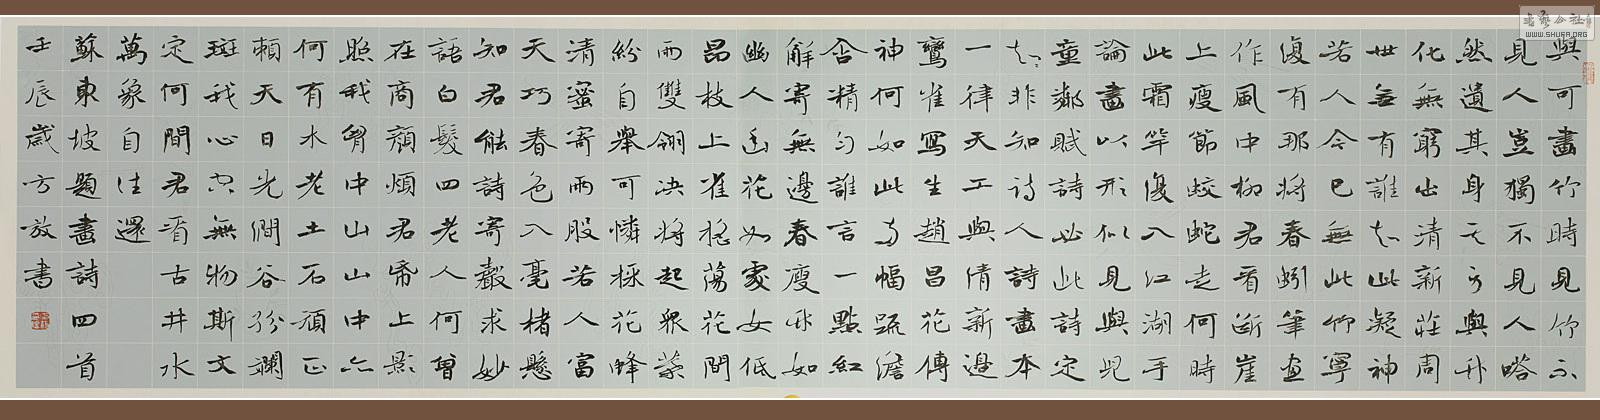 與可畫竹時見竹不
見人豈獨不見人嗒
然遺其身其身與竹
化無窮出清新莊周
世無有誰知此凝神
若人今已無此竹寧
復有那將春蚓筆畫
作風中柳君看斷崖
上瘦節蛟蛇走何時
此霜竿復入江湖手
論畫以形似見與兒
童鄰賦詩必此詩定
知非知詩人詩畫本
一律天工與清新邊
鸞雀寫生趙昌花傳
神何如此兩幅疏澹
含精勻誰言一點紅
解寄無邊春瘦竹如
幽人幽花如處女低
昂枝上雀搖蕩花間
雨雙翎決將起眾葉
紛自舉可憐採花蜂
清蜜寄兩股若人富
天巧春色入毫楮懸
知君能詩寄聲求妙
語白髮四老人何曾
在商顏煩君紙上影
照我胸中山山中亦
何有木老土石頑正
賴天日光澗谷紛斕
斑我心空無物斯文
定何間君看古井水
萬象自往還
蘇東坡題畫詩四首
壬辰歲方放書
书艺公社
WWW.SHUFA.ORG